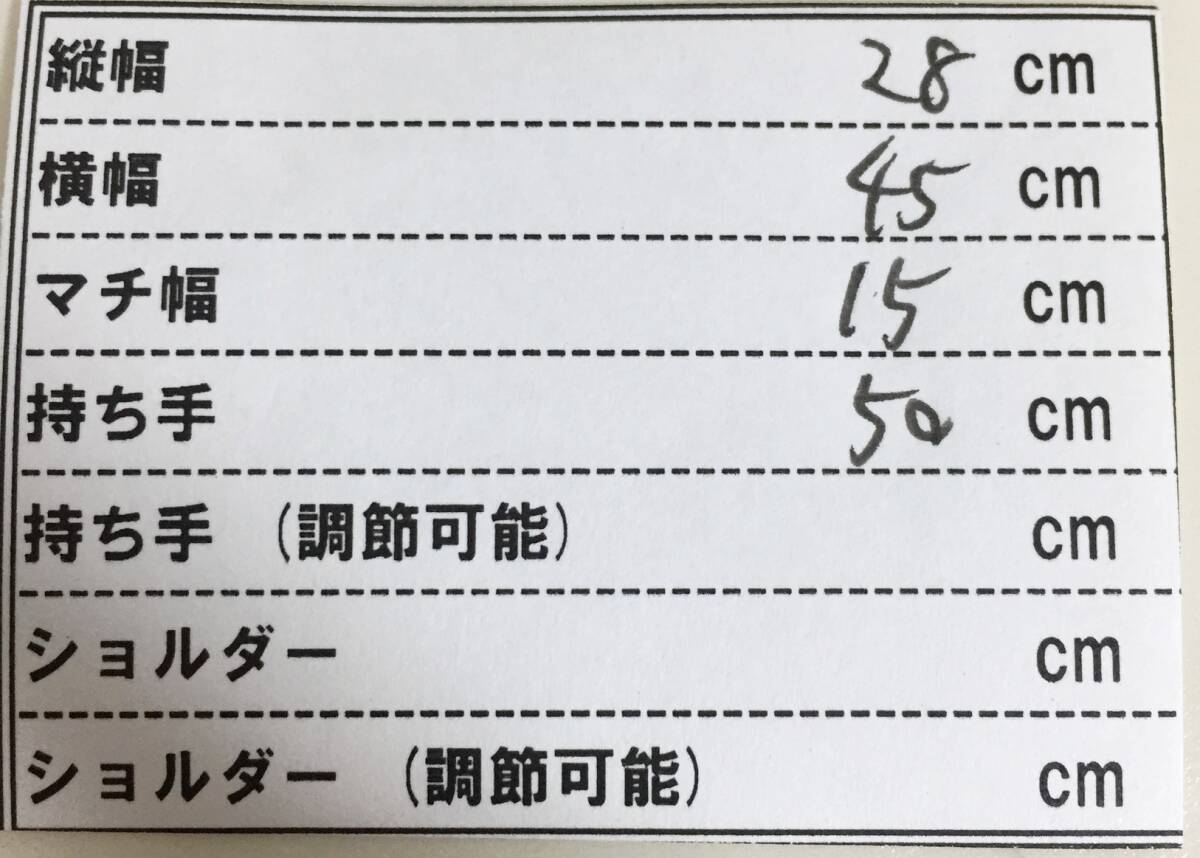 縦幅 28 cm
横幅 45 cm
マチ幅 15 cm
持ち手 50 cm
持ち手 (調節可能) cm
ショルダー cm
ショルダー (調節可能) cm